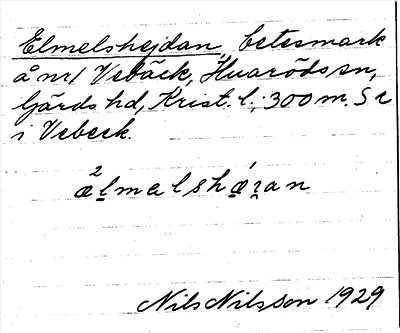 Elmelshejdan, betesmark
å nr 1 Vebäck, Huaröds sn,
Gärds hd, Krist. l.; 300 m. S
i Vebeck.
Nils Nilsson 1929